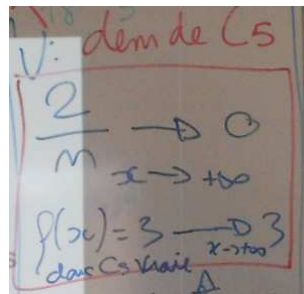 V: dem de C5
2/n → 0
x → +∞
f(x) = 3 → 3
x → +∞
donc C5 vraie